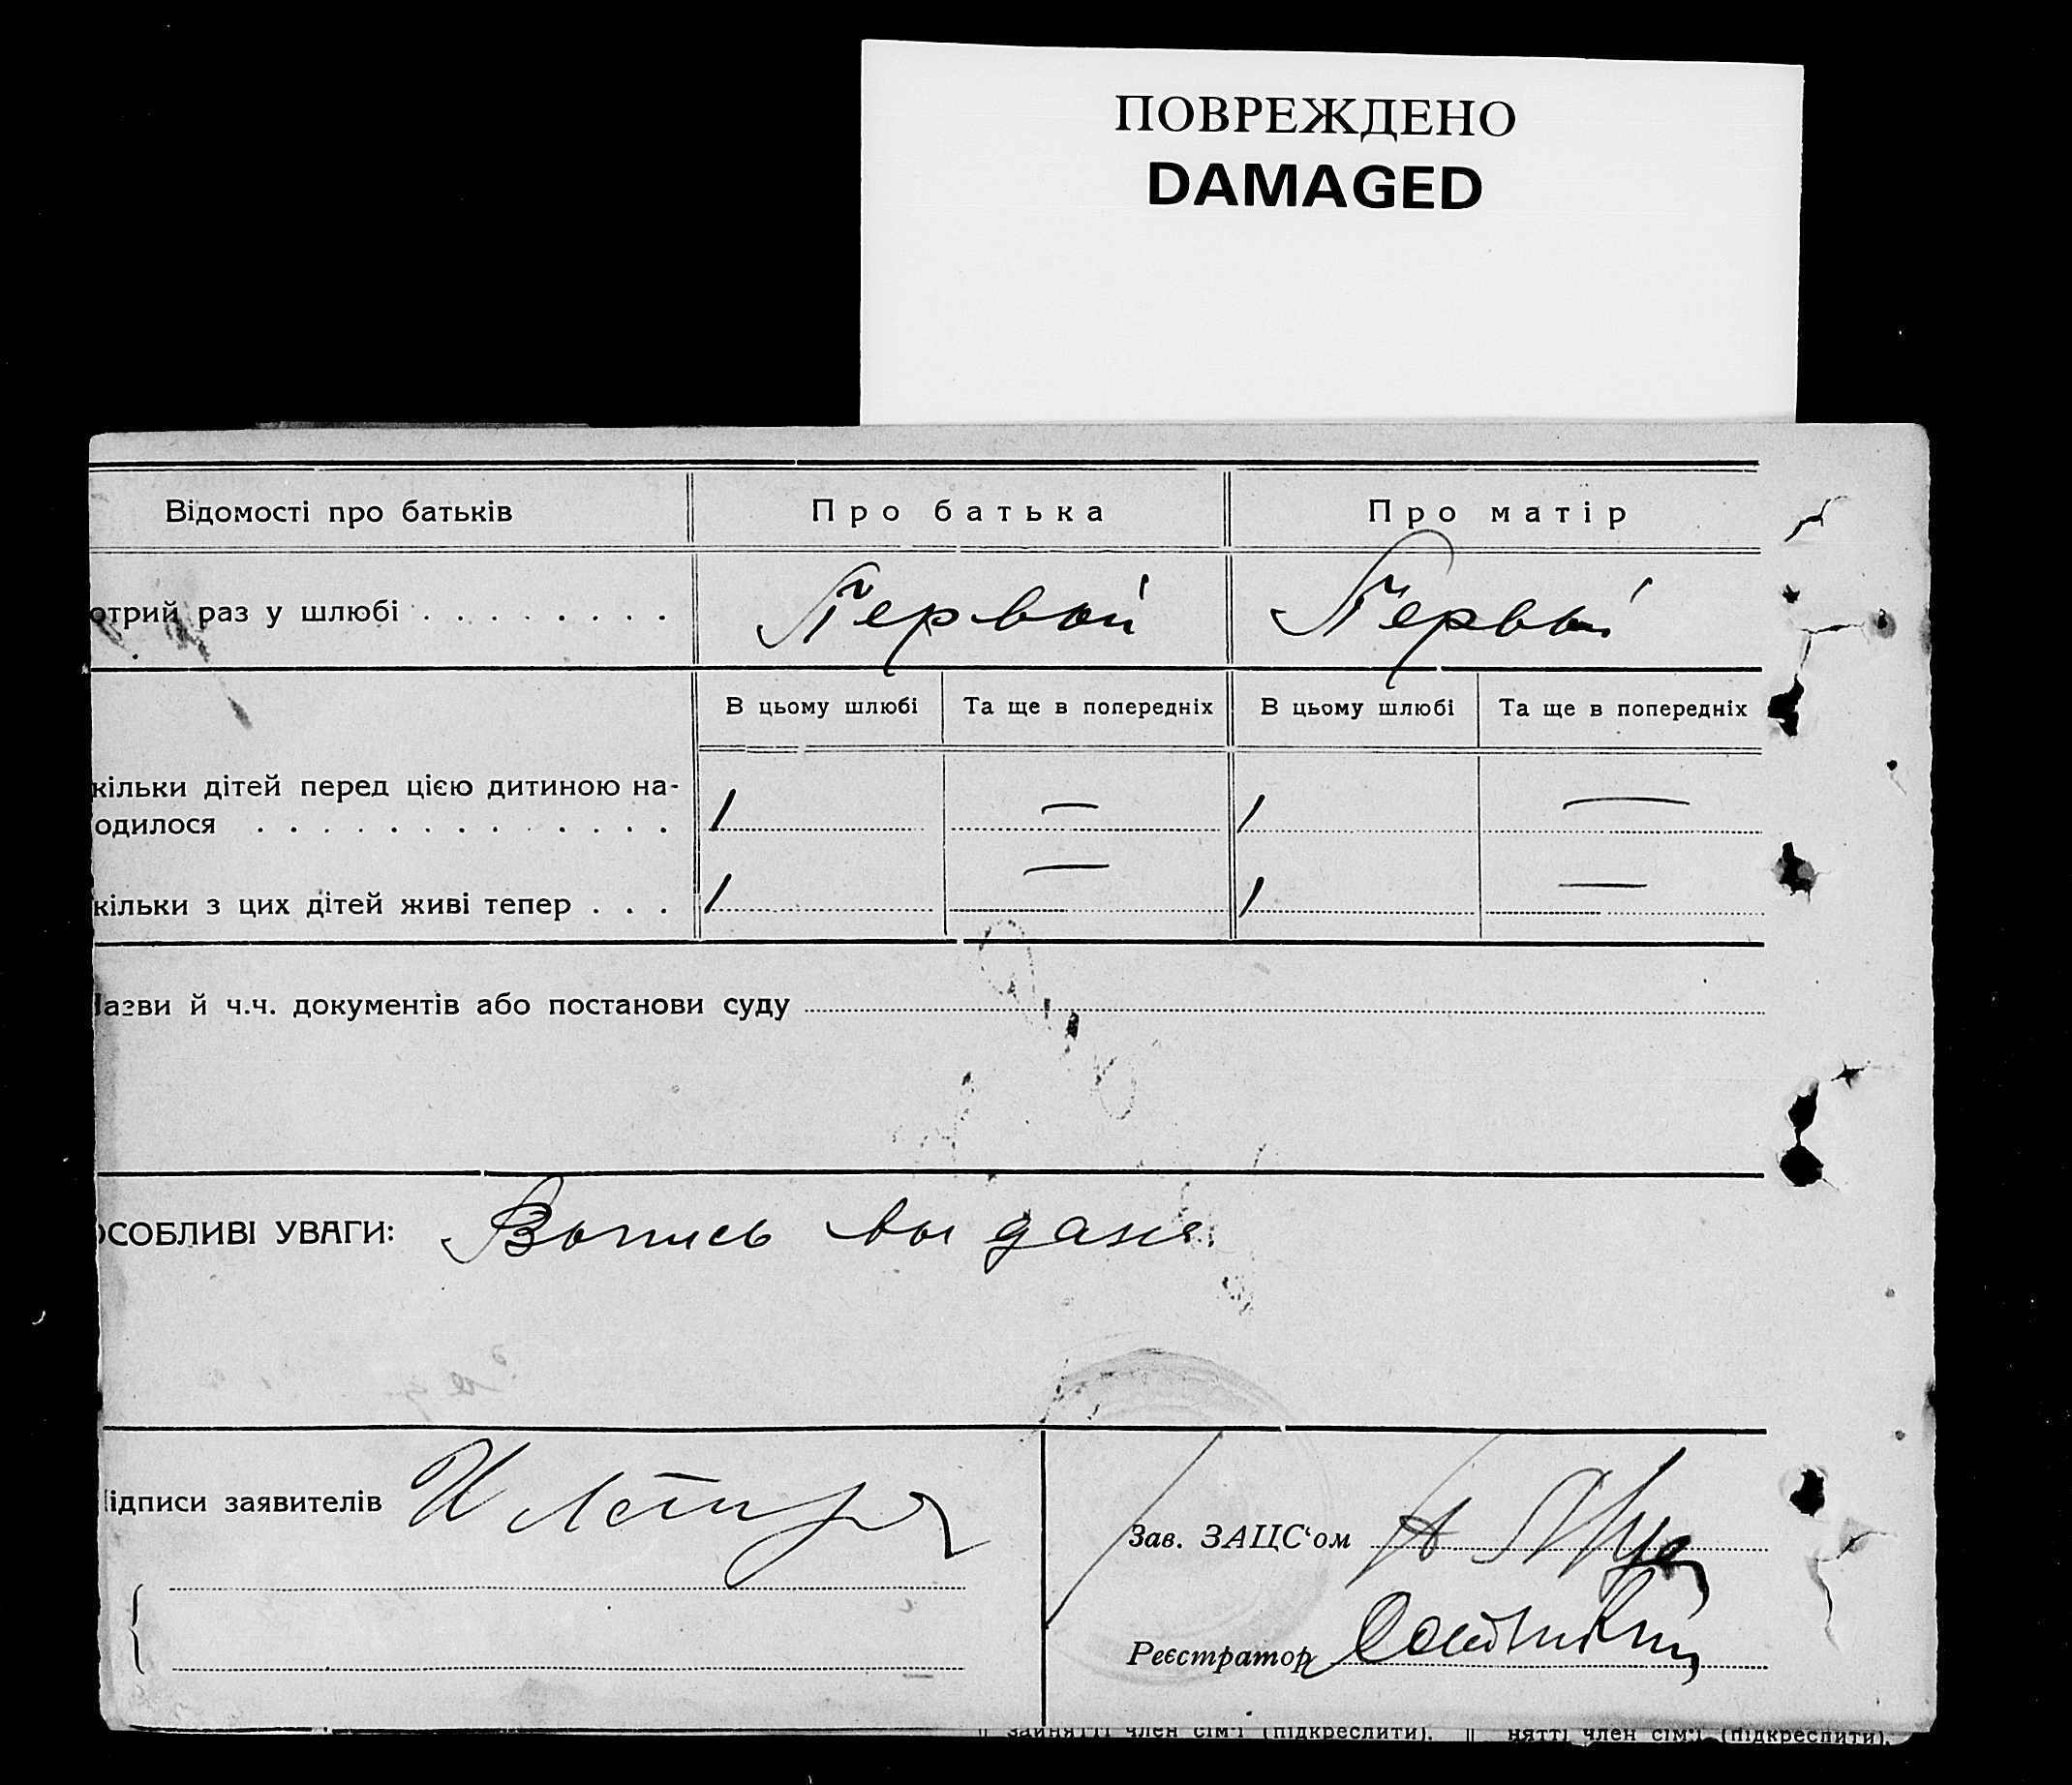 ПОВРЕЖДЕНО
DAMAGED
Відомості про батьків Про батька Про матір
отрий раз у шлюбі . . . . . . . . Первый Первый
В цьому шлюбі Та ще в попередніх В цьому шлюбі Та ще в попередніх
кільки дітей перед цією дитиною на-
одилося . . . . . . . . . . . . . 1 — 1 —
кільки з цих дітей живі тепер . . . 1 — 1 —
азви й ч.ч. документів або постанови суду
ОСОБЛИВІ УВАГИ: Выпись выдана.
ідписи заявителів
Зав. ЗАЦС‘ом
Реєстратор
зайнятті член сім'ї (підкреслити). нятті член сім'ї (підкреслити).